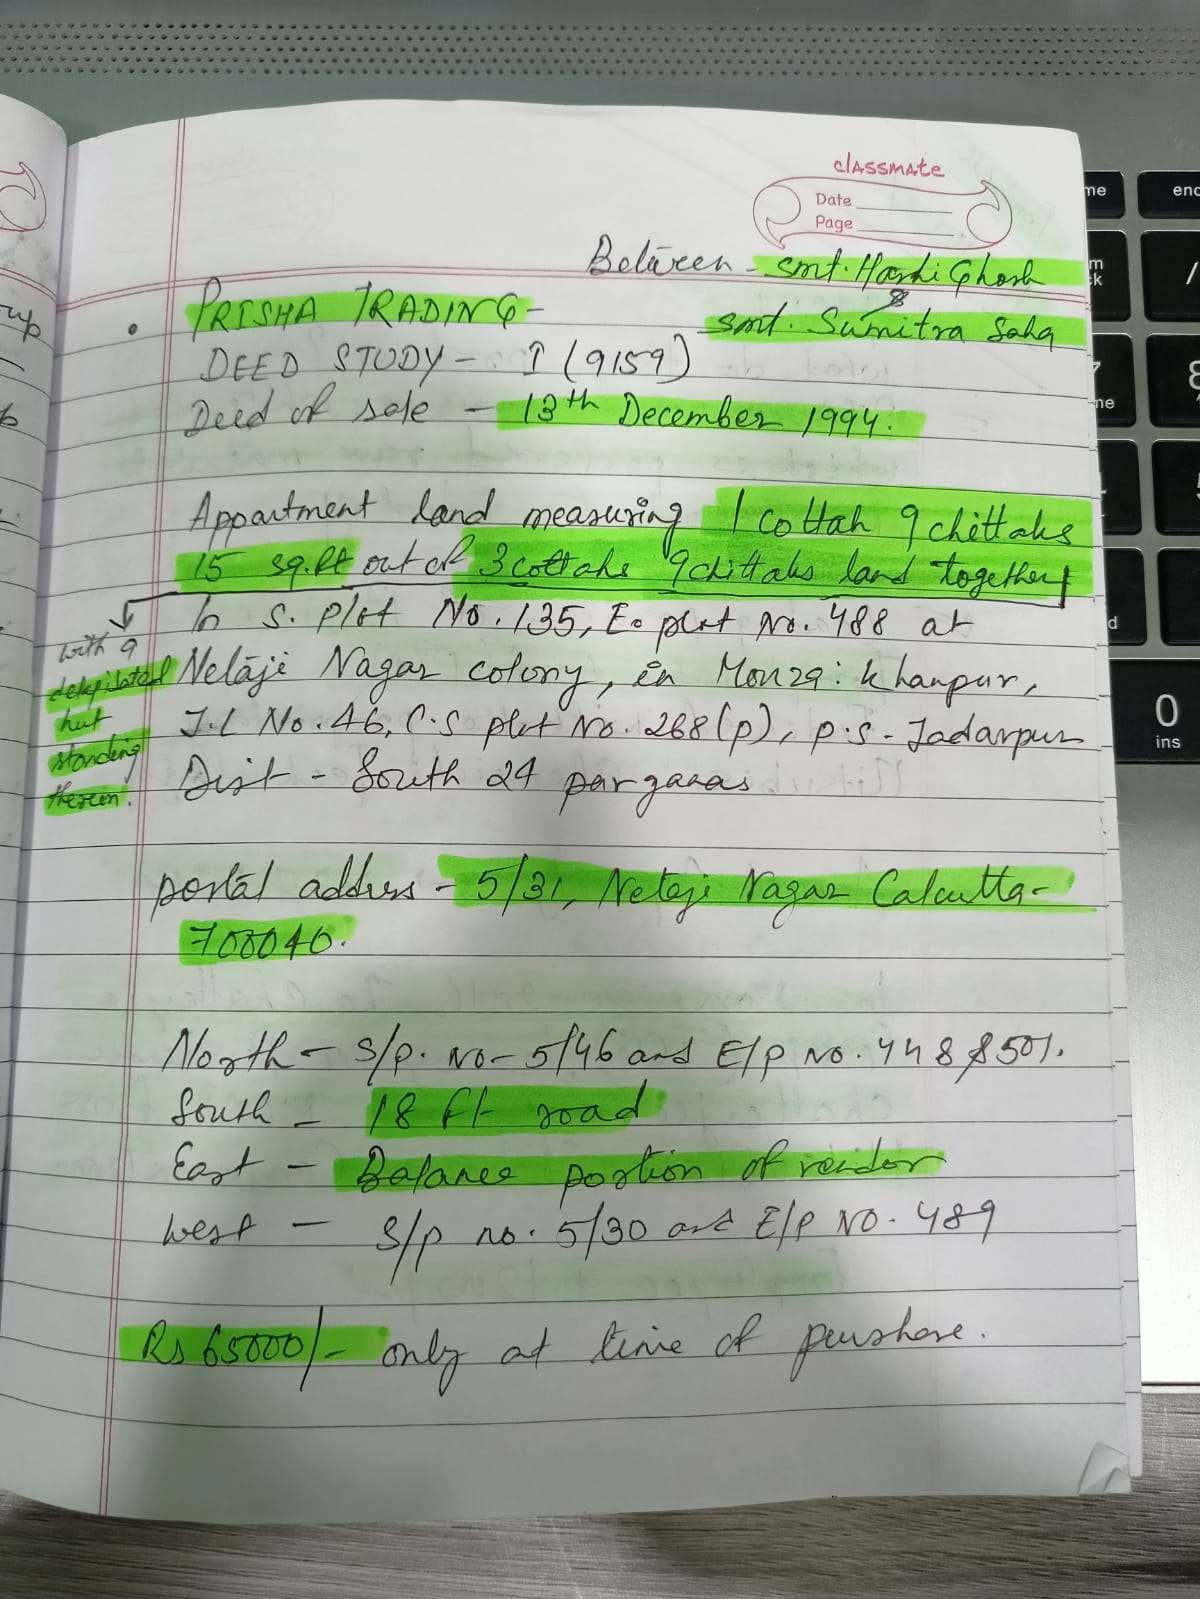 classmate
Date
Page
Between - Smt. Hashi Ghosh
&
Smt. Sumitra Saha
• PRISHA TRADING -
DEED STUDY - I (9159)
Deed of sale - 13th December 1994.
Appartment land measuring 1 cottah 9 chittaks
15 sq.ft out of 3 cottahs 9 chittaks land together
with a
delapilated
hut
standing
therein.
In S. Plot No. 135, E. plot No. 488 at
Netaji Nagar colony, in Mouza: Khanpur,
J.L No. 46, C.S plot No. 268(p), P.S - Jadavpur
Dist - South 24 parganas
postal address - 5/31, Netaji Nagar Calcutta-
700040.
North - S/p. No - 5/46 and E/p No. 448 & 501.
South - 18 ft road
East - Balance portion of vendor
West - S/p no. 5/30 and E/p NO. 489
Rs 65000/- only at time of purshase.
me
end
m
k
/
7
me
8
d
0
ins